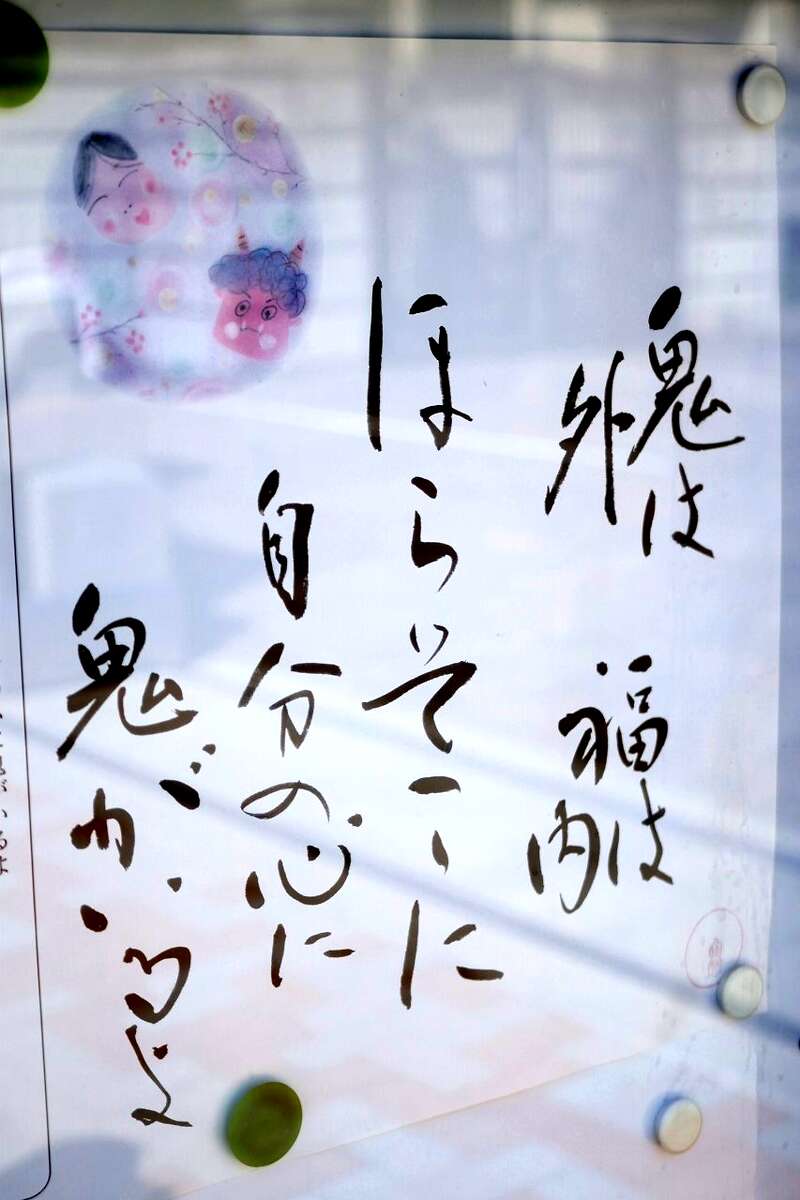 鬼は外
福は内
ほらそこに
自分の心に
鬼がいるよ